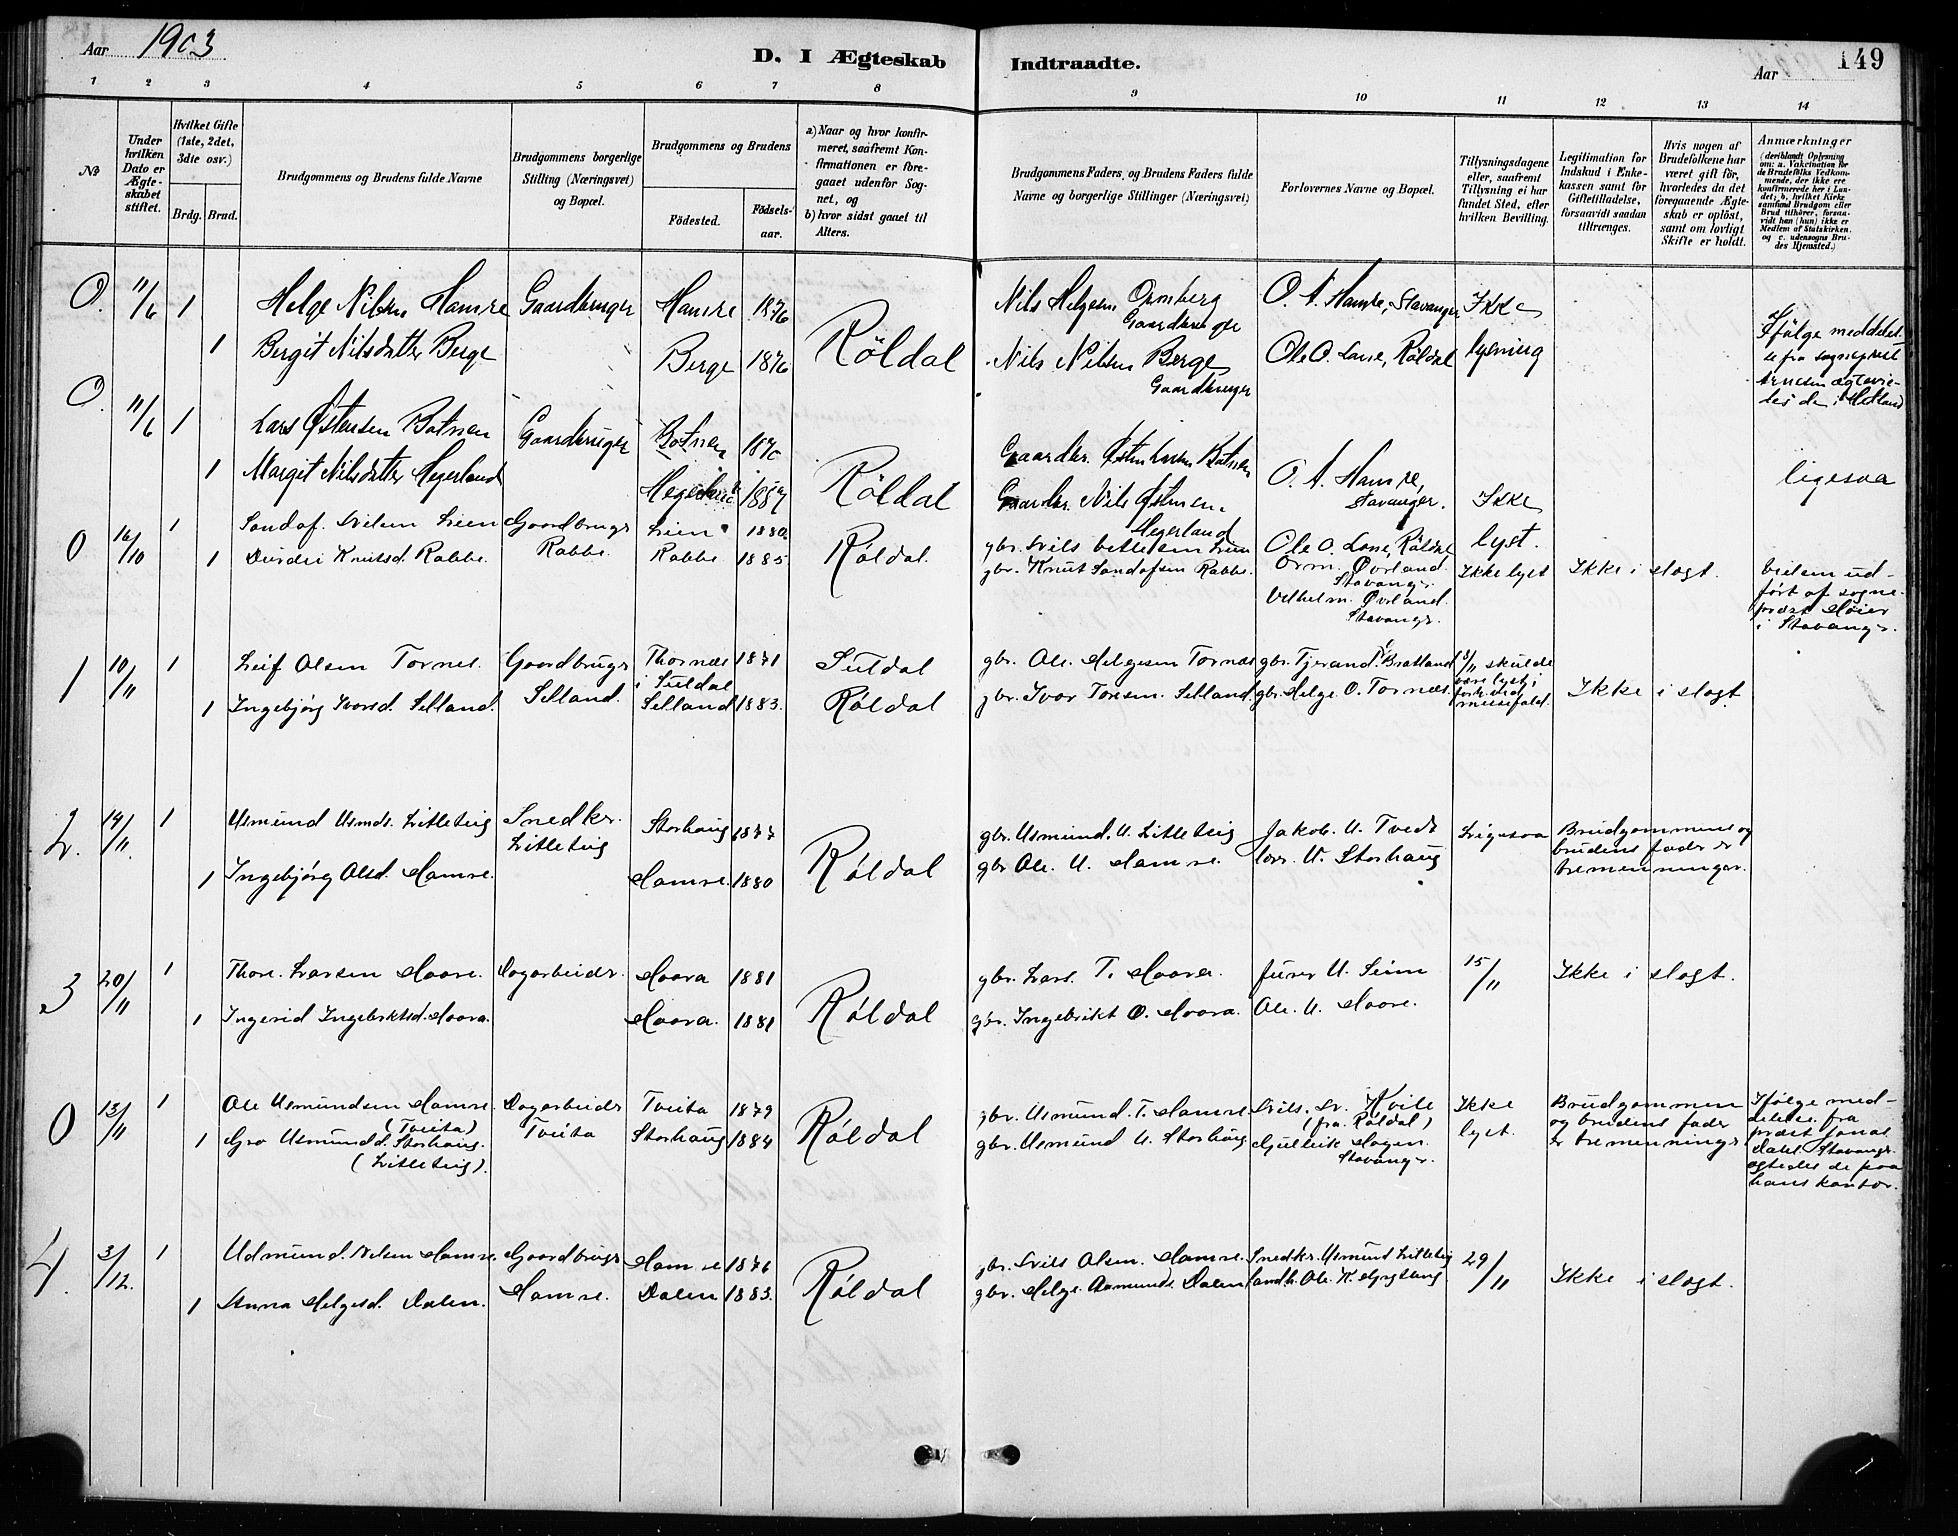 Aar 1903
D. I Ægteskab Indtraadte.
Aar 149
1 2 3 4 5 6 7 8 9 10 11 12 13 14
No
Under hvilken Dato er Ægteskabet stiftet.
Hvilket Gifte (1ste, 2det, 3die osv.)
Brdg. Brud.
Brudgommens og Brudens fulde Navne
Brudgommens borgerlige Stilling (Næringsvei) og Bopæl.
Brudgommens og Brudens
Fødested.
Fødselsaar.
a) Naar og hvor konfirmeret, saafremt Konfirmationen er foregaaet udenfor Sognet, og
b) hvor sidst gaaet til Alters.
Brudgommens Faders, og Brudens Faders fulde Navne og borgerlige Stillinger (Næringsvei)
Forlovernes Navne og Bopæl.
Tillysningsdagene eller, saafremt Tillysning ei har fundet Sted, efter hvilken Bevilling.
Legitimation for Indskud i Enkekassen samt for Giftetilladelse, forsaavidt saadan tiltrænges.
Hvis nogen af Brudefolkene har været gift før, hvorledes da det foregaaende Ægteskab er opløst, samt om lovligt Skifte er holdt.
Anmærkninger
(deriblandt Oplysning om: a. Vakcination for de Brudefolks Vedkommende, der ikke ere konfirmerede her i Landet; b. hvilket Kirkesamfund Brudgom eller Brud tilhører, forsaavidt han (hun) ikke er Medlem af Statskirken, og c. udensogns Brudes Hjemsted.)
O. 11/6 1 Helge Nilsen Hamre Gaardbruger Hamre 1876 Nils Helgesen Ormberg Gaardbruger O. A. Hamre, Stavanger Ikke
1 Bergit Nilsdatter Berge Berge 1876 Röldal Nils Nilsen Berge Gaardbruger Ole O. Lone, Röldal lysning
Ifölge meddelelse fra sogneprest Arnesen ægtevieles de i Hetland
O. 11/6 1 Lars Østensen Botnen Gaardbruger Botnen 1870 Gaardbr. Østen Larsen Botnen O. A. Hamre, Stavanger. Ikke
1 Margit Nilsdatter Hegerland Hegerland Röldal Gaardbr. Nils Østensen Hegerland Ole O. Lone, Röldal lyst.
ligesaa
0 16/10 1 Gaardbruger Lien 1880 Røldal gbr. Nils Orm. Øvrland. Stavanger Ikke lyst Ikke i slegt.
1 Knutsd. Rabbe. Rabbe. Rabbe 1885 gbr. Knut Sandofsen Rabbe. Vilhelm. Øvrland. Stavanger.
vielsen udført af sogneprest Høier i Stavanger.
1 10/11 1 Leif Olsen Tornes. Gaardbruger Thornæs i Suldal 1871 Suldal gbr. Ole. Helgesen Tornæs gbr. Tjerand Bratland 8/11 skulde være lyst;
1 Ingebjørg Ivarsd. Selland. Selland. Selland 1883. Røldal gbr. Ivar Toresen. Selland. gbr. Helge O. Tornæs. Ikke i slegt.
2. 14/11. 1 Asmund Asmds. Litletvig Snedker. Litletvig Storhaug 1877 gbr. Asmund. A. Litletvig Jakob. A. Tvedt Ligesaa Brudgommens og brudens fader er tremenninger.
1 Ingebjørg Olsd. Hamre. Hamre. 1880 Røldal gbr. Ole. A. Hamre. A. Storhaug
3 20/11 1 Thore. Larsen Haare. Dagarbeider. Haara 1881 gbr. Lars. T. Haara. A. Seim 15/11 Ikke i slegt.
1 Ingerid Ingebriktsd. Haara. Haara. 1881 Røldal gbr. Ingebrikt O. Haara. Ole. A. Haare.
0 13/11 1 Ole Asmundsen Hamre. (Tveita) Dagarbeider Tveita Tveita 1879 Røldal gbr. Asmund. T. Hamre Nils. Kvile (fra Røldal) Ikke lyst. Brudgommen og brudens fader er tremenninger
1 Gro Asmundd. Storhaug. (Litletvig). Storhaug 1884 gbr. Asmund A. Storhaug Gjulleik Hagen. Stavanger.
Ifølge meddelelse fra prest Jonas Dahl Stavanger ægtedes de paa hans kontor.
4. 3/12. 1 Admund. Nilsen Hamre. Gaardbruger Hamre 1876 gbr. Nils Olsen. Hamre. Snedker. Asmund Litletvig 29/11 Ikke i slegt.
1 Anna Helgesd. Dalen. Hamre. Dalen 1883. Røldal gbr. Helge. Aamunds. Dalen